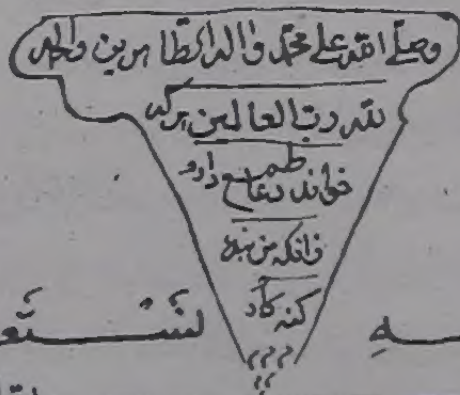 وصلی الله علی محمد واله الطاهرین والحمد
لله رب العالمین هرکه
خواند دعا طمع دارم
زانکه من بنده
کنه کارم
نستع
ه